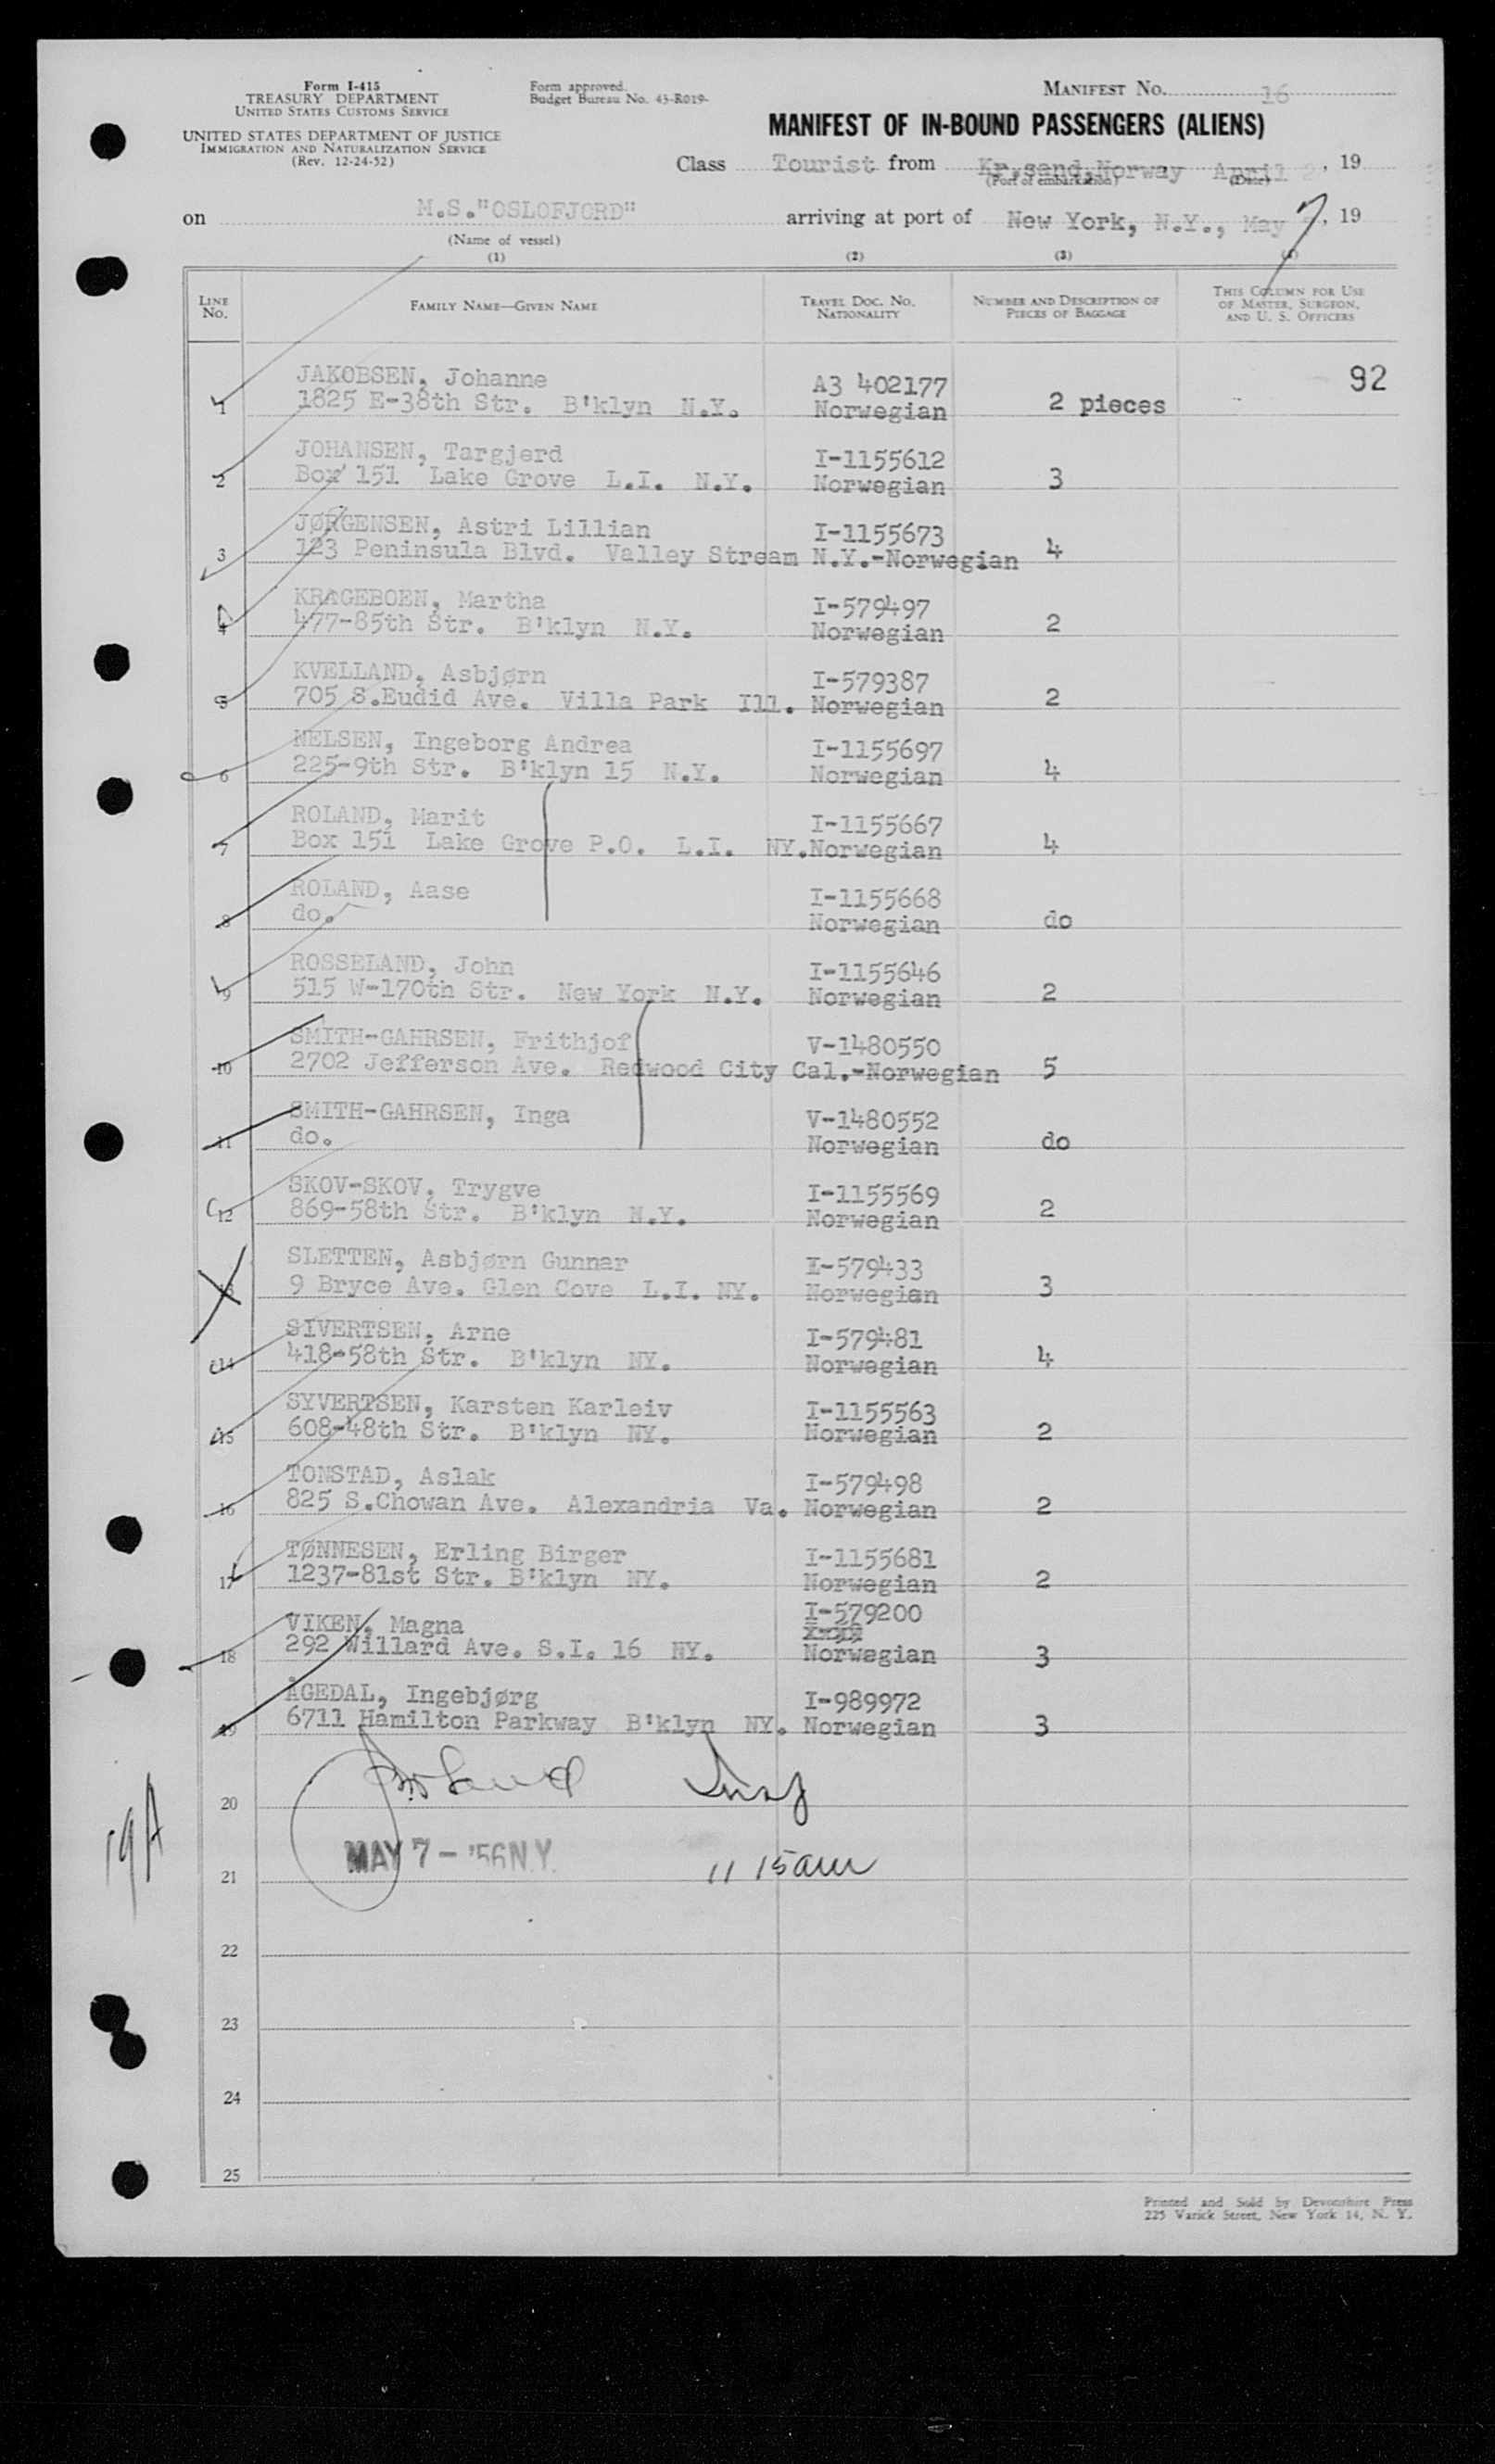 Form I-415
TREASURY DEPARTMENT
UNITED STATES CUSTOMS SERVICE
UNITED STATES DEPARTMENT OF JUSTICE
IMMIGRATION AND NATURALIZATION SERVICE
(Rev. 12-24-52)
Form approved.
Budget Bureau No. 43-R019-
MANIFEST No. 16
MANIFEST OF IN-BOUND PASSENGERS (ALIENS)
Class Tourist from Kr.sand,Norway April , 19
(Port of embarkation) (Date)
on M.S."OSLOFJORD" arriving at port of New York, N.Y., May 7, 19
(Name of vessel)
(1) (2) (3) (4)
LINE No. FAMILY NAME—GIVEN NAME TRAVEL DOC. No. NATIONALITY NUMBER AND DESCRIPTION OF PIECES OF BAGGAGE THIS COLUMN FOR USE OF MASTER, SURGEON, AND U. S. OFFICERS
92
JAKOBSEN, Johanne A3 402177
1 1825 E-38th Str. B'klyn N.Y. Norwegian 2 pieces
JOHANSEN, Targjerd I-1155612
2 Box 151 Lake Grove L.I. N.Y. Norwegian 3
JØRGENSEN, Astri Lillian I-1155673
3 123 Peninsula Blvd. Valley Stream N.Y.-Norwegian 4
KRAGEBOEN, Martha I-579497
4 477-85th Str. B'klyn N.Y. Norwegian 2
KVELLAND, Asbjørn I-579387
5 705 S.Eudid Ave. Villa Park Ill. Norwegian 2
NELSEN, Ingeborg Andrea I-1155697
6 225-9th Str. B'klyn 15 N.Y. Norwegian 4
ROLAND, Marit I-1155667
7 Box 151 Lake Grove P.O. L.I. NY.Norwegian 4
ROLAND, Aase I-1155668
8 do. Norwegian do
ROSSELAND, John I-1155646
9 515 W-170th Str. New York N.Y. Norwegian 2
SMITH-GAHRSEN, Frithjof V-1480550
10 2702 Jefferson Ave. Redwood City Cal.-Norwegian 5
SMITH-GAHRSEN, Inga V-1480552
11 do. Norwegian do
SKOV-SKOV, Trygve I-1155569
12 869-58th Str. B'klyn N.Y. Norwegian 2
SLETTEN, Asbjørn Gunnar I-579433
13 9 Bryce Ave. Glen Cove L.I. NY. Norwegian 3
SIVERTSEN, Arne I-579481
14 418-58th Str. B'klyn NY. Norwegian 4
SYVERTSEN, Karsten Karleiv I-1155563
15 608-48th Str. B'klyn NY. Norwegian 2
TONSTAD, Aslak I-579498
16 825 S.Chowan Ave. Alexandria Va. Norwegian 2
TØNNESEN, Erling Birger I-1155681
17 1237-81st Str. B'klyn NY. Norwegian 2
VIKEN, Magna I-579200
18 292 Willard Ave. S.I. 16 NY. Norwegian 3
ÅGEDAL, Ingebjørg I-989972
19 6711 Hamilton Parkway B'klyn NY. Norwegian 3
20
19A
MAY 7 - '56 N.Y. 11 15am
21
22
23
24
25
Printed and Sold by Devonshire Press
225 Varick Street, New York 14, N. Y.